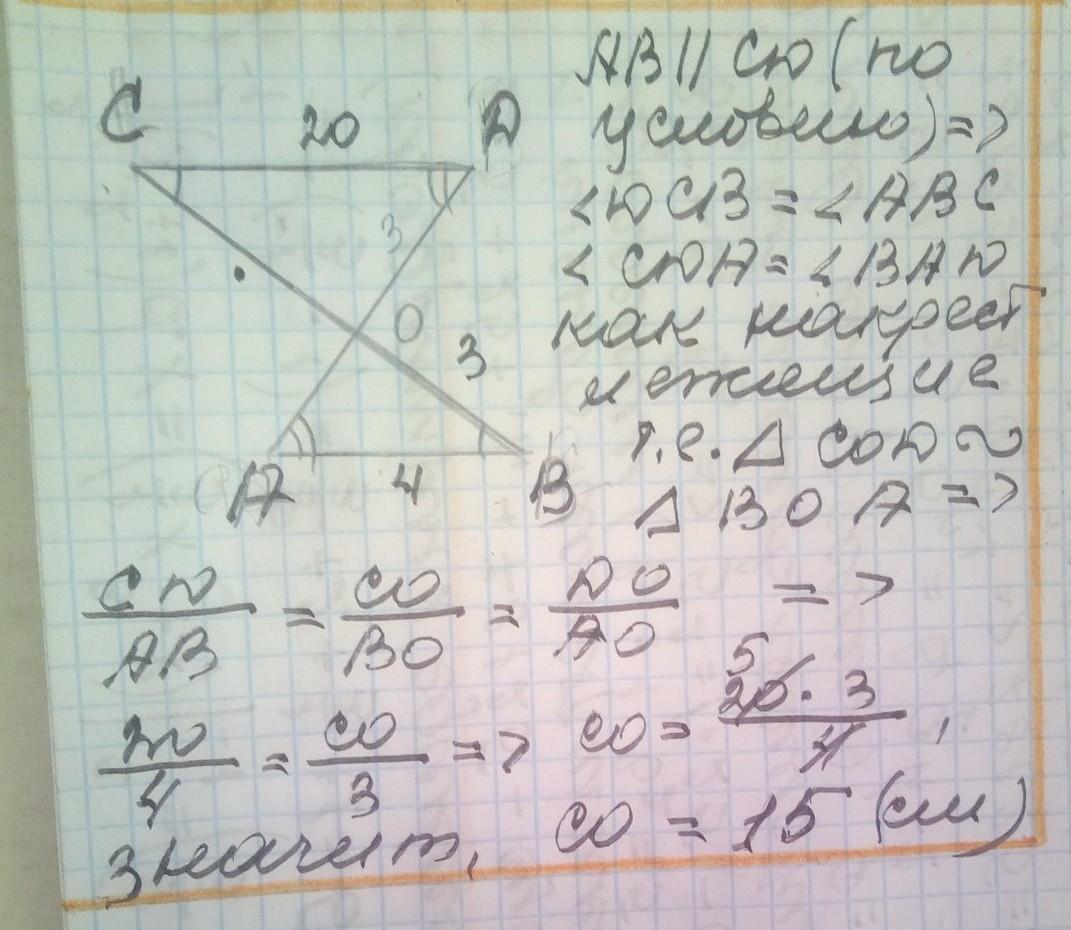 C 20 D
3
O
3
A 4 B
AB || CD (по
условию) =>
∠DCB = ∠ABC
∠CDA = ∠BAD
как накрест
лежащие
т.е. Δ COD ∾
Δ BOA =>
CD/AB = CO/BO = DO/AO =>
20/4 = CO/3 => CO = 5 20·3/4,
значит, CO = 15 (см)